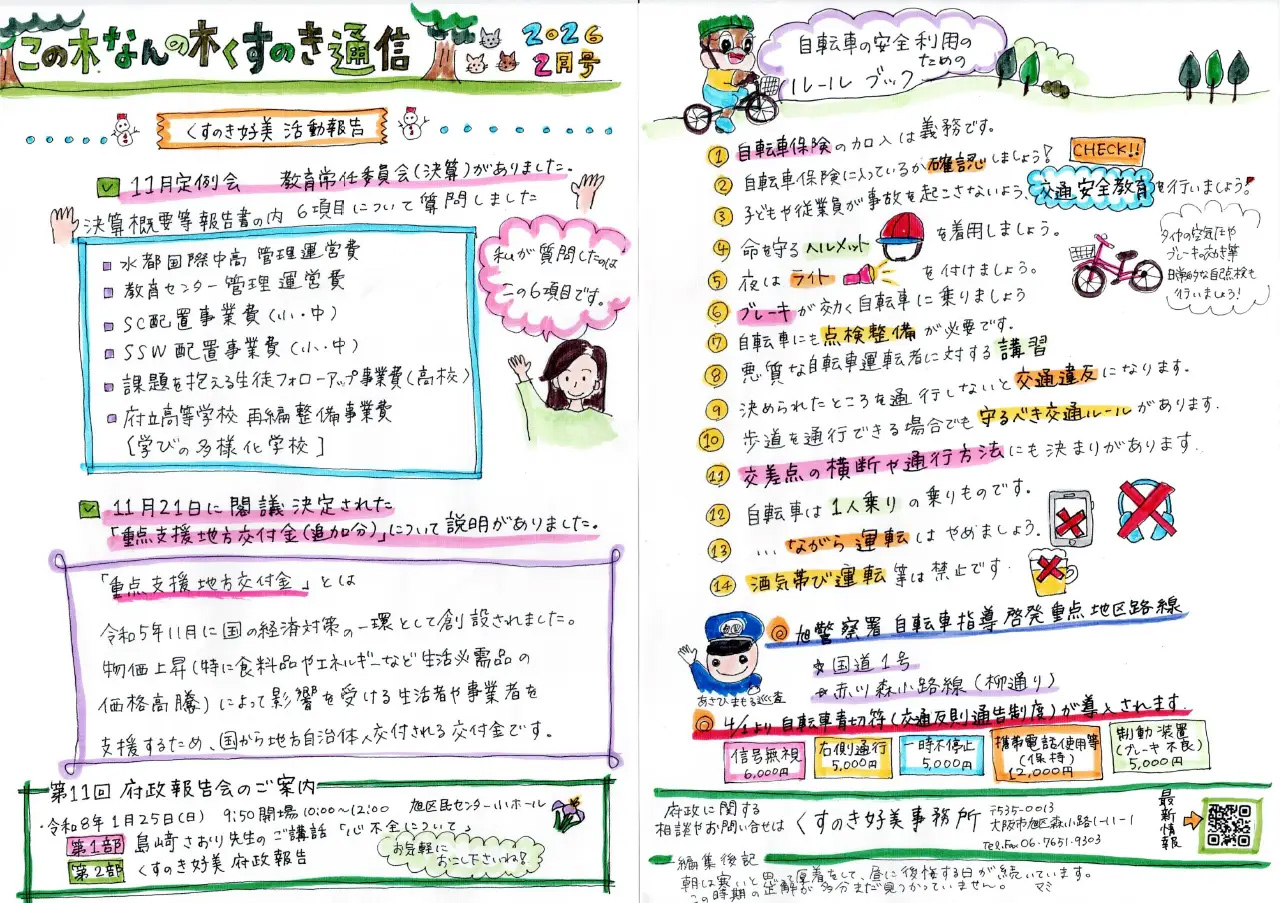 この木なんの木くすのき通信
2026
2月号
くすのき好美 活動報告
11月定例会 教育常任委員会(決算)がありました。
決算概要等報告書の内 6項目について質問しました
水都国際中高 管理運営費
教育センター管理運営費
SC配置事業費(小・中)
SSW配置事業費(小・中)
課題を抱える生徒フォローアップ事業費(高校)
府立高等学校再編整備事業費
[学びの多様化学校]
私が質問したのは
この6項目です。
11月21日に閣議決定された
「重点支援地方交付金(追加分)」について説明がありました。
「重点支援地方交付金」とは
令和5年11月に国の経済対策の一環として創設されました。
物価上昇(特に食料品やエネルギーなど生活必需品の
価格高騰)によって影響を受ける生活者や事業者を
支援するため、国から地方自治体へ交付される交付金です。
第11回 府政報告会のご案内
・令和8年1月25日(日) 9:50開場 10:00〜12:00 旭区民センター小ホール
第1部 島﨑さおり先生のご講話「心不全について」
第2部 くすのき好美 府政報告
お気軽に
おこし下さいね!
自転車の安全利用の
ための
ルールブック
① 自転車保険の加入は義務です。
CHECK!!
② 自転車保険に入っているか確認しましょう!
③ 子どもや従業員が事故を起こさないよう、交通安全教育を行いましょう!
④ 命を守るヘルメットを着用しましょう。
⑤ 夜はライトを付けましょう。
⑥ ブレーキが効く自転車に乗りましょう
⑦ 自転車にも点検整備が必要です。
タイヤの空気圧や
ブレーキの効き等
日常的な自己点検も
行いましょう!
⑧ 悪質な自転車運転者に対する講習
⑨ 決められたところを通行しないと交通違反になります。
⑩ 歩道を通行できる場合でも守るべき交通ルールがあります.
⑪ 交差点の横断や通行方法にも決まりがあります.
⑫ 自転車は1人乗りの乗りものです。
⑬ …ながら運転はやめましょう。
⑭ 酒気帯び運転等は禁止です.
旭警察署 自転車指導啓発重点地区路線
☆国道1号
☆赤川森小路線(柳通り)
あさひまもる巡査
4/1より自転車青切符(交通反則通告制度)が導入されます.
信号無視
6,000円
右側通行
5,000円
一時不停止
5,000円
携帯電話使用等
(保持)
12,000円
制動装置
(ブレーキ不良)
5,000円
府政に関する
相談やお問い合せは
くすのき好美事務所
〒535-0013
大阪市旭区森小路1-11-1
Tel.Fax 06-7651-9303
最新情報
編集後記
朝は寒いと思って厚着をして、昼に後悔する日が続いています。
この時期の正解が多分まだ見つかっていません。 マミ